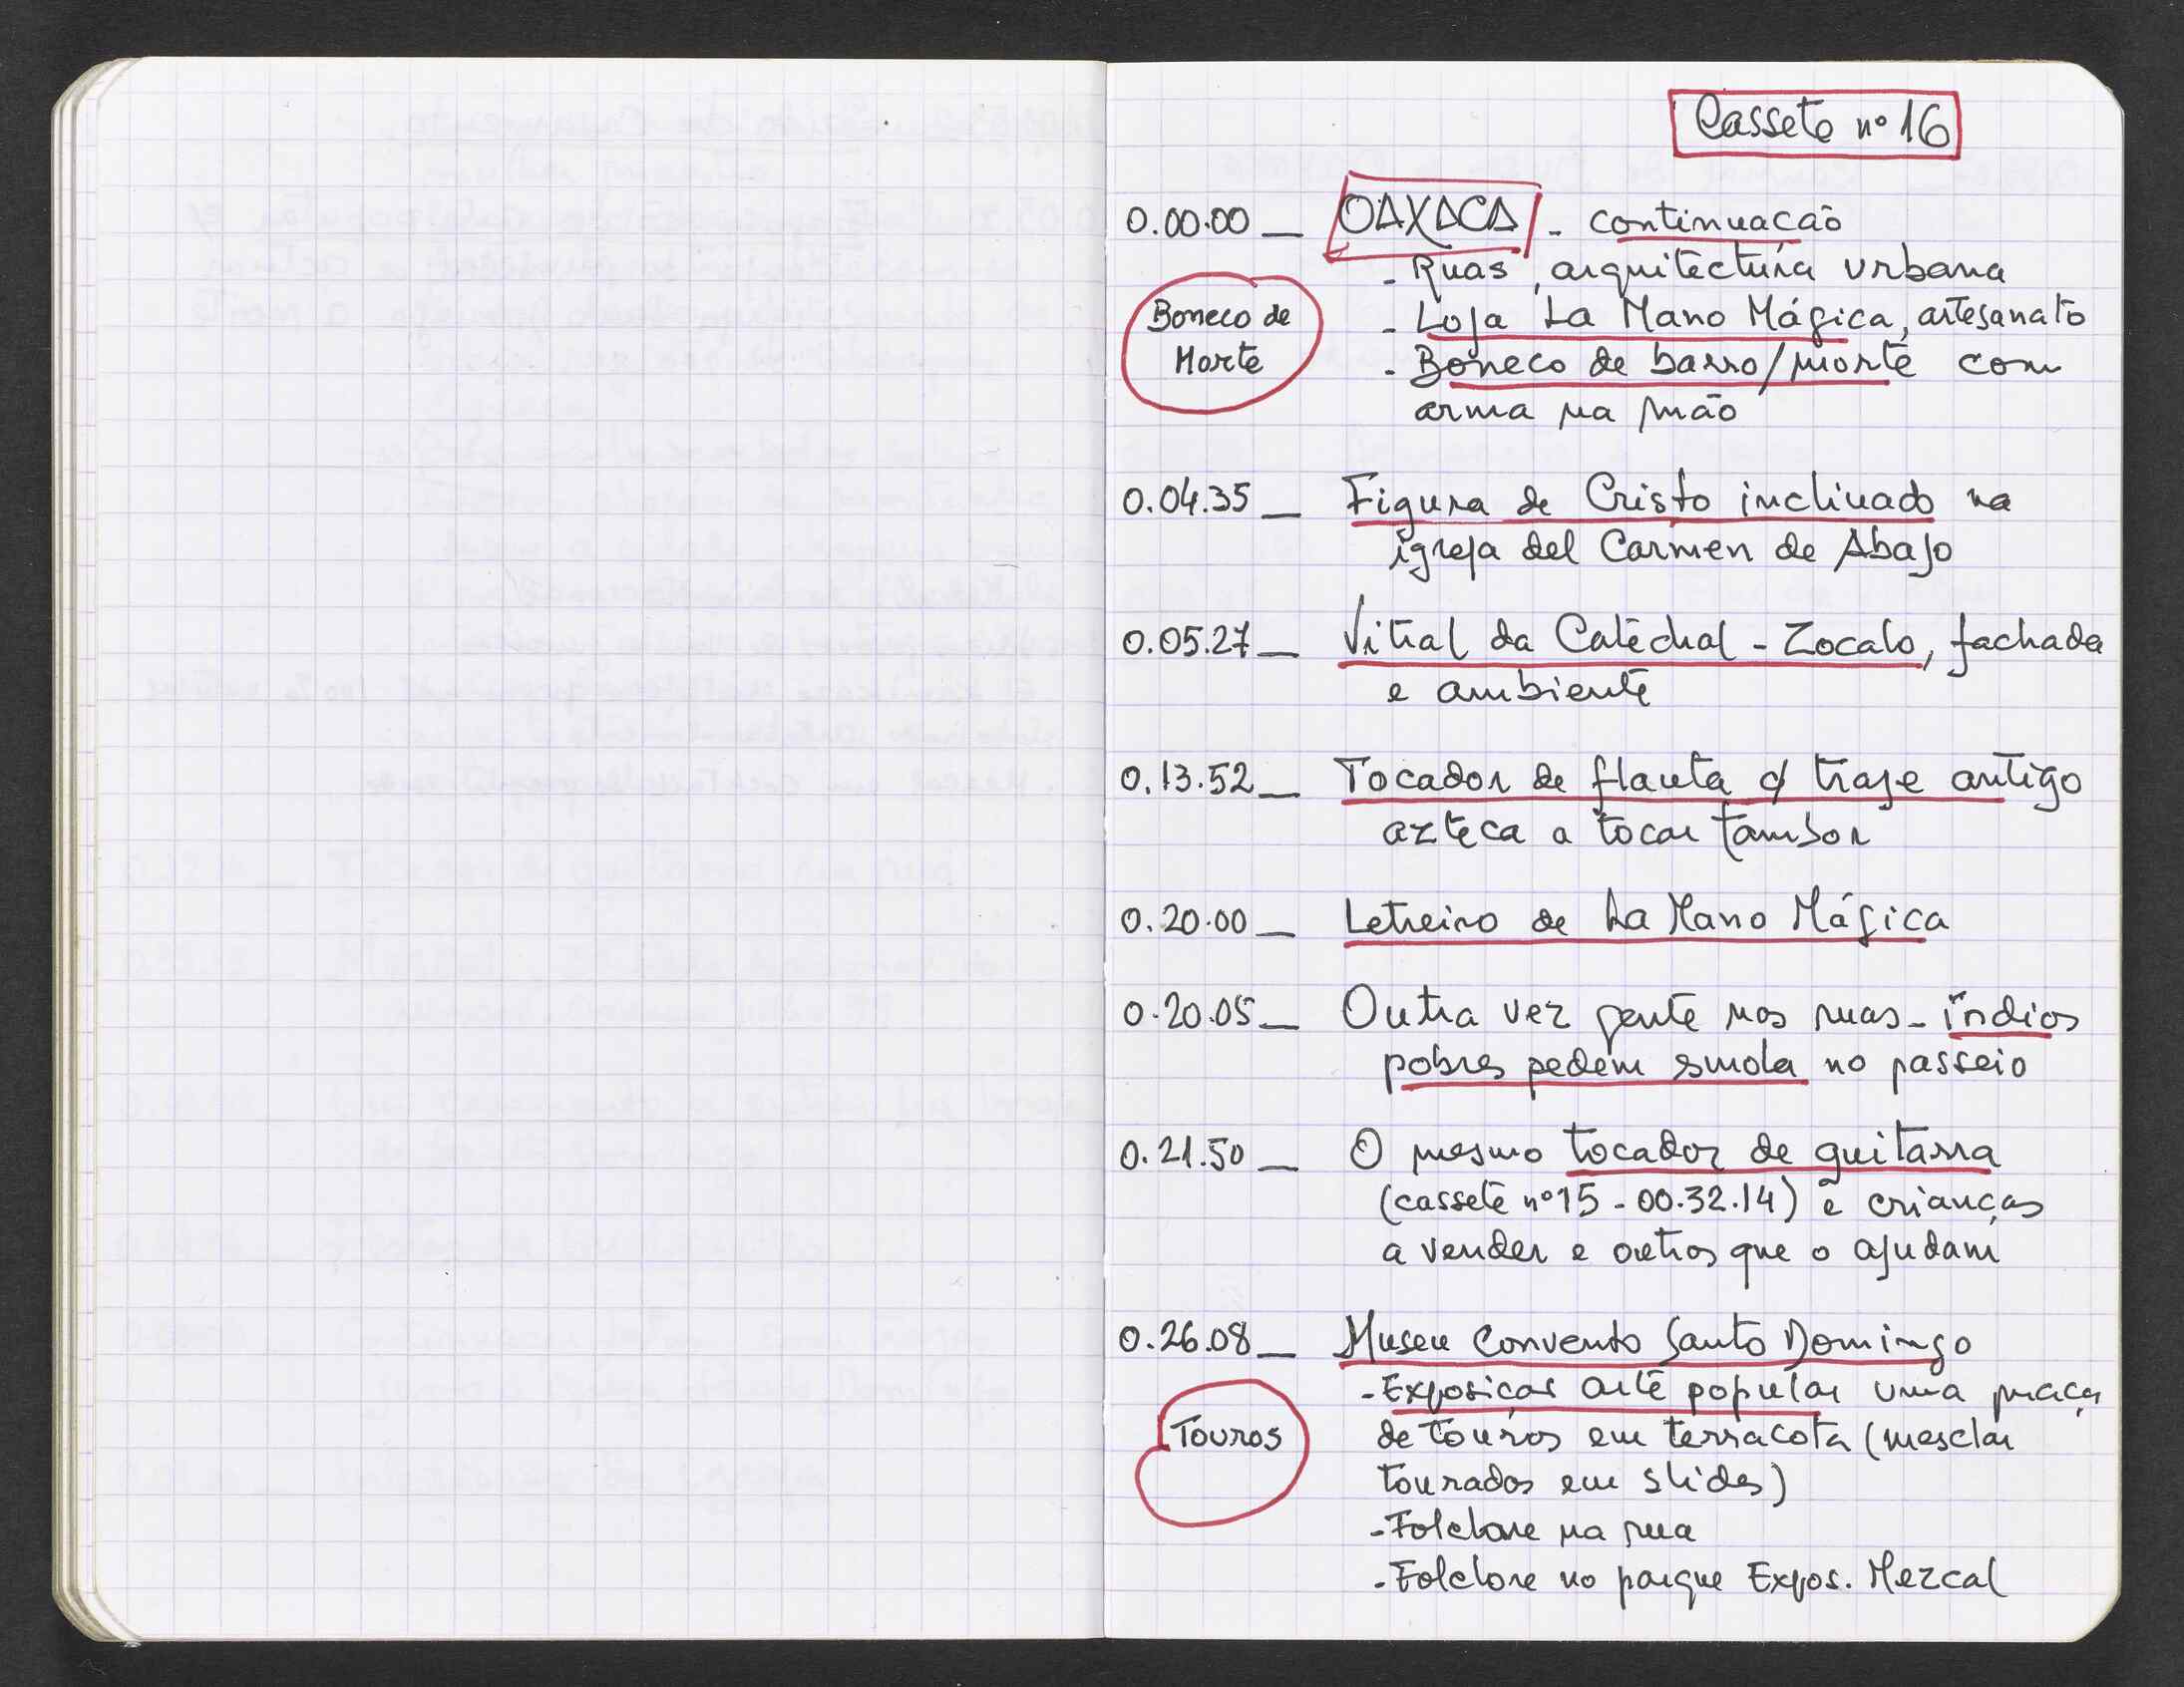 Cassete nº 16
0.00.00 _ OAXACA - continuação
- Ruas, arquitectura urbana
Boneco de
Morte
- Loja La Mano Mágica, artesanato
- Boneco de barro/morte com
arma na mão
0.04.35 _ Figura de Cristo inclinado na
igreja del Carmen de Abajo
0.05.27 _ Vitral da Catedral - Zocalo, fachada
e ambiente
0.13.52 _ Tocador de flauta c/ traje antigo
azteca a tocar tambor
0.20.00 _ Letreiro de La Mano Mágica
0.20.05 _ Outra vez gente nas ruas - índios
pobres pedem esmola no passeio
0.21.50 _ O mesmo tocador de guitarra
(cassete nº 15 - 00.32.14) e crianças
a vender e outros que o ajudam
0.26.08 _ Museu Convento Santo Domingo
- Exposição arte popular uma praça
Touros
de touros em terracota (mesclar
touradas em slides)
- Folclore na rua
- Folclore no parque Expos. Mezcal